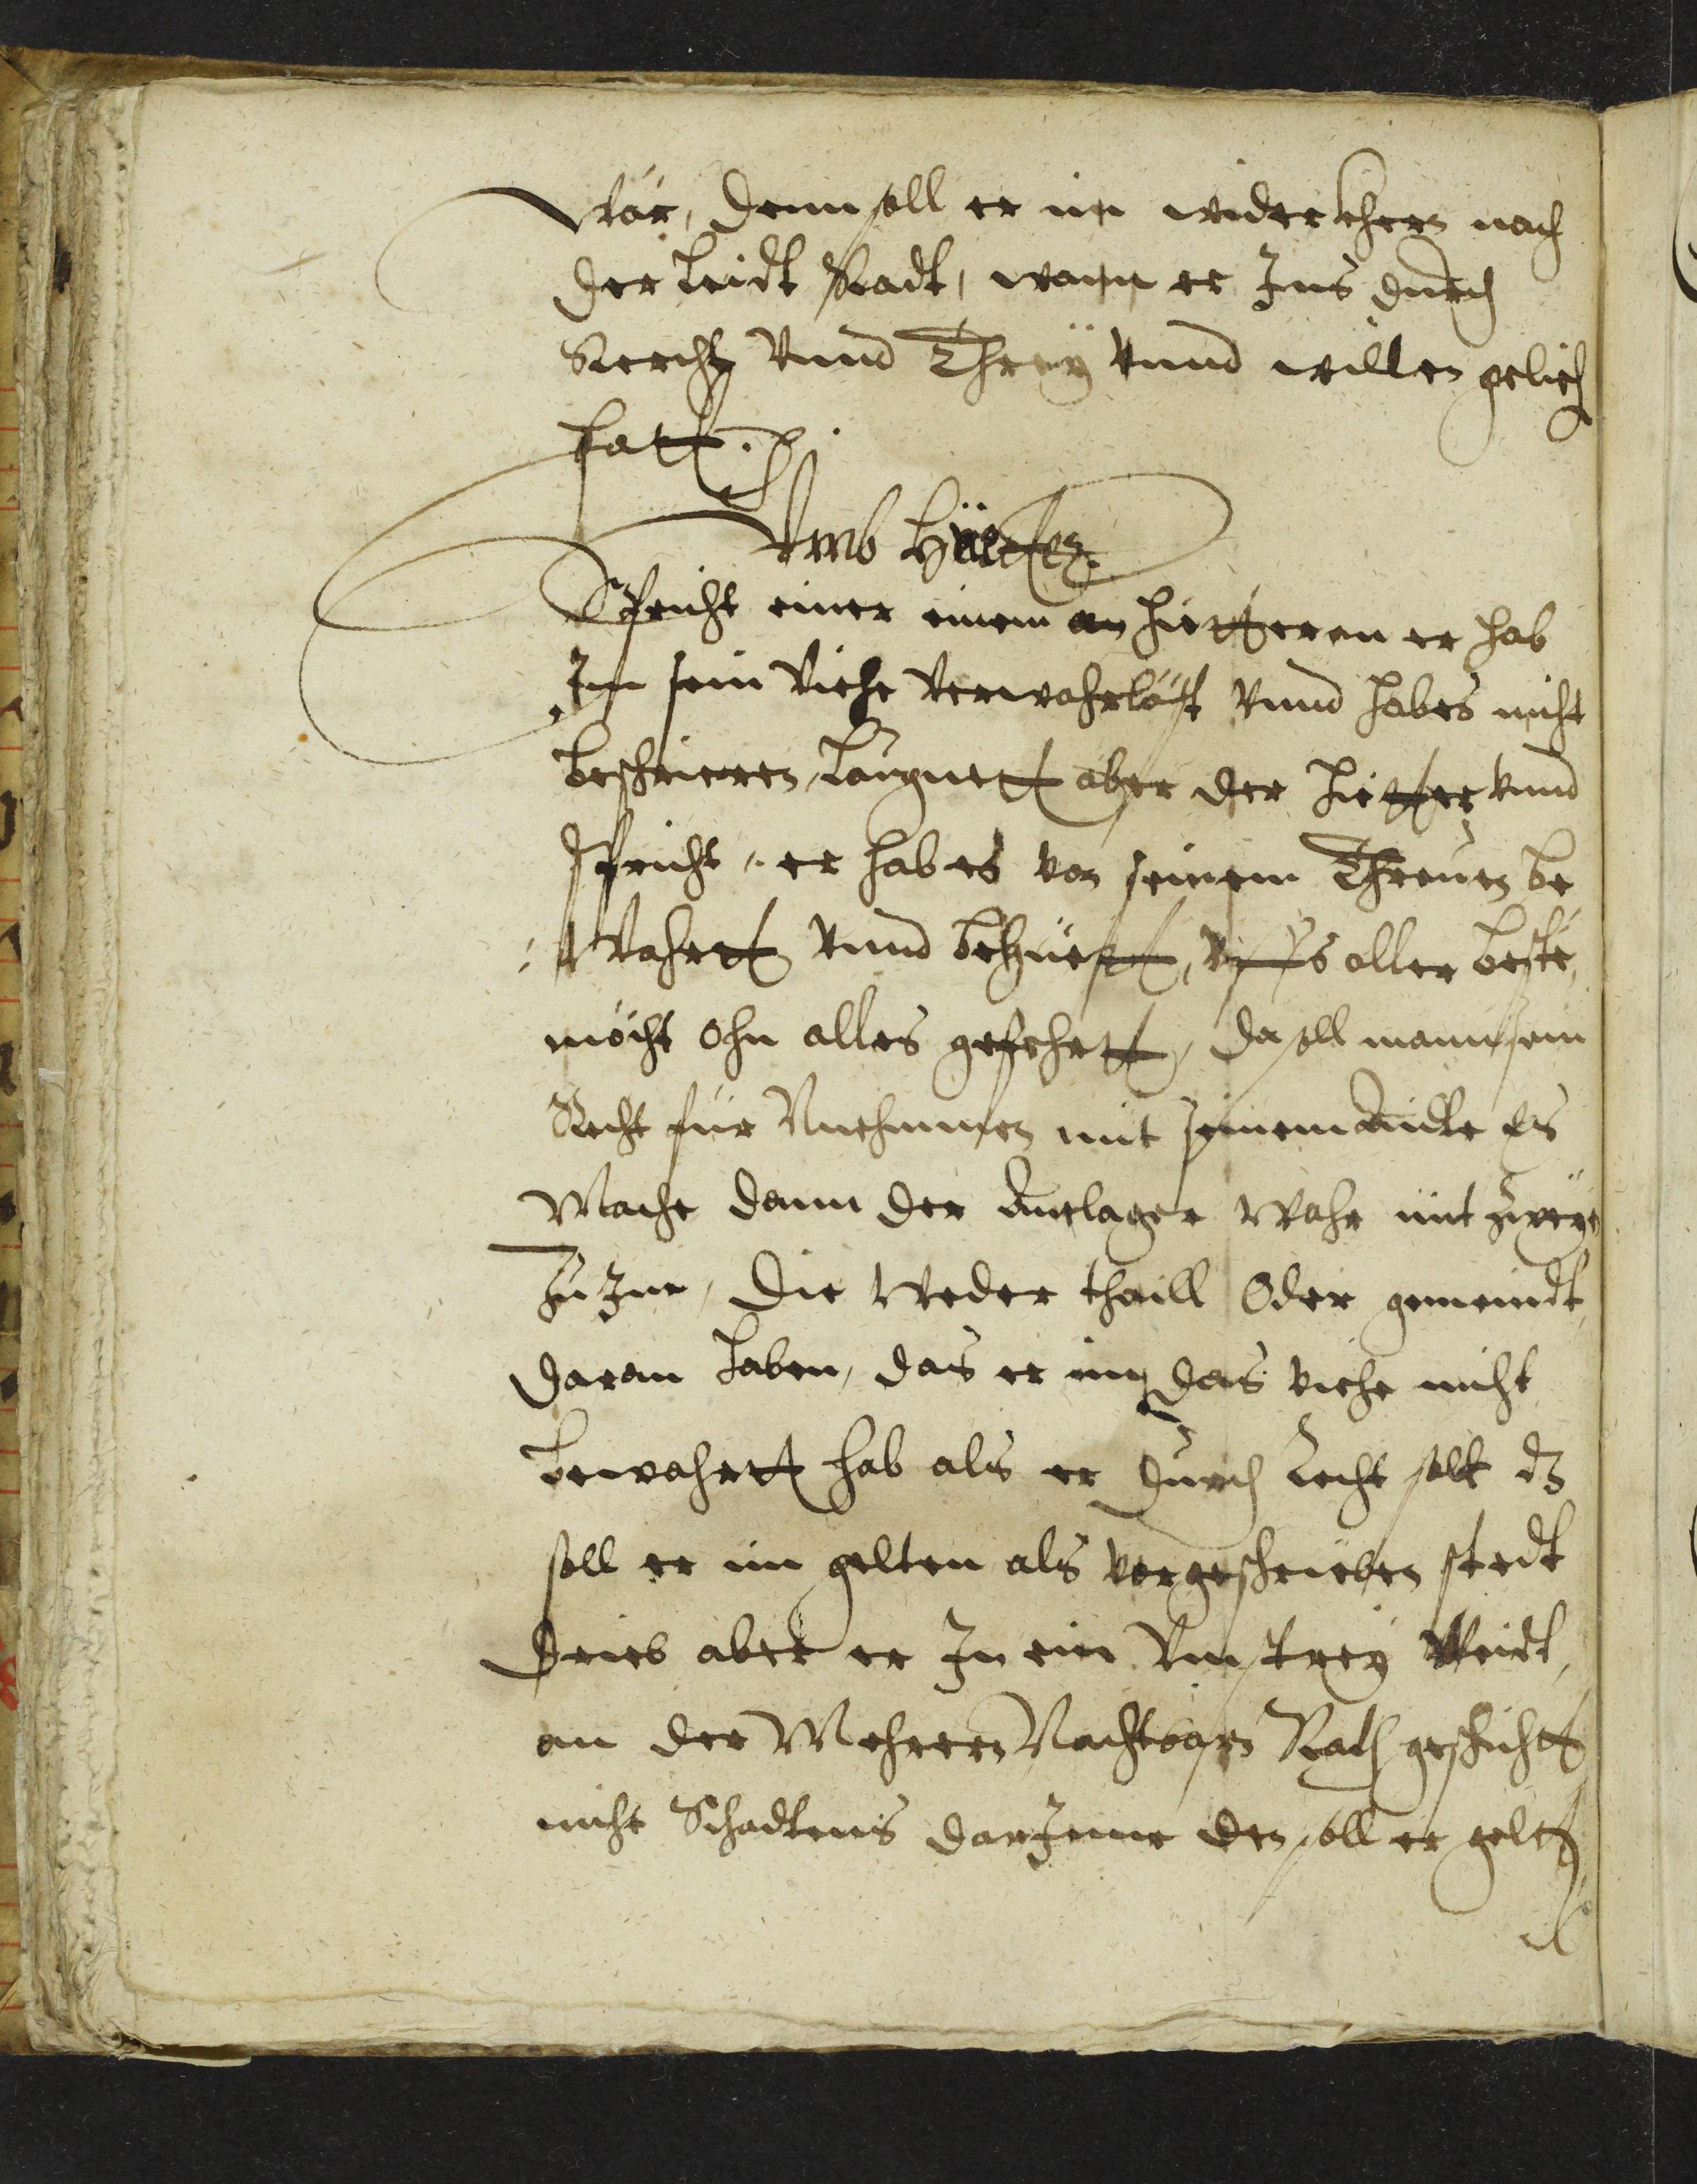 Wär, denn soll er im widerkhern nach
der Leidt Radt, wann er Ims durch
Rechts Vnnd Threÿ vnnd willen gelich
hatt.
Vmb Hüetter.
Spricht einer einem an hietteren er hab
Im sein Viehe Verwahrlöst Vnnd hab es nicht
beschrieren, Laugnett aber der Hietter vnnd
spricht, er hab es von seinem Threuen be
Wahrtt Vnnd behüett, Vffs aller beste,
möcht ohn alles gefehrtt, da soll mann sein
Recht für Nnehmmen mit seinem Aidte Es
Mache dann der Anclager Wahr mit zweÿen
Zu Ime, die Weder thaill Oder gemeindt,
daran haben, das er im das viehe nicht
bewahrtt hab als er durch Recht solt dz
soll er im gelten als vorgeschrieben stedt
Drieb aber er In ein Vnstreÿ Weidt,
an der Mehrern Nachtbarn Rath geschicht
nicht Schadtens darJnne den soll er geltn